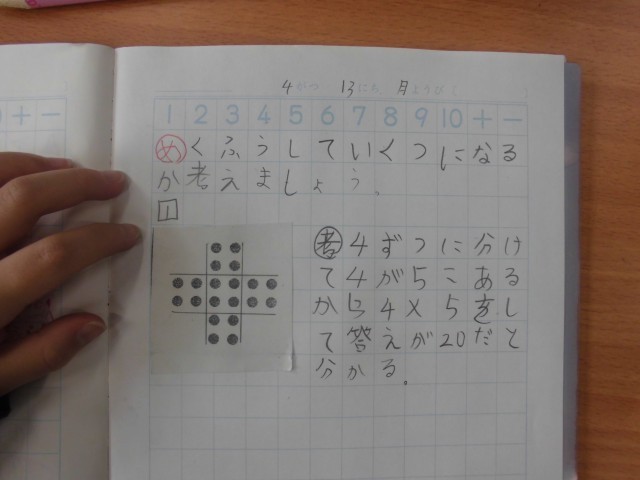 4がつ 13にち 月ようび
1 2 3 4 5 6 7 8 9 10 + -
めくふうしていくつになる
か考えましょう。
1
考4ずつに分け
て4が5こある
から4×5をし
て答えが20だと
分かる。